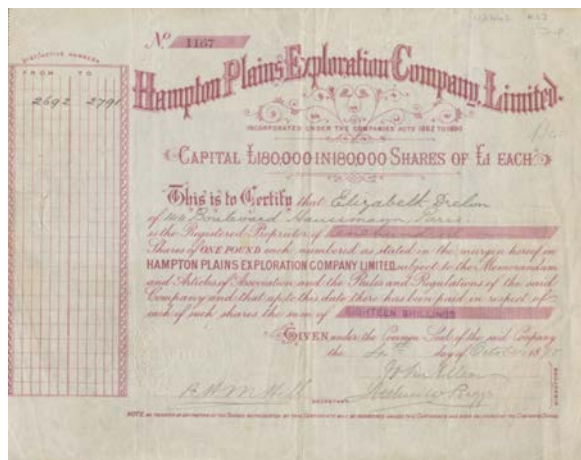 No. 1167
DISTINCTIVE NUMBERS
FROM TO
2692 2791
Hampton Plains Exploration Company, Limited.
INCORPORATED UNDER THE COMPANIES ACTS 1862 TO 1890
CAPITAL £180,000 IN 180,000 SHARES OF £1 EACH
This is to Certify that Elizabeth
of Boulevard Haussmann, Paris
is the Registered Proprietor of one hundred
Shares of ONE POUND each, numbered as stated in the margin hereof in
HAMPTON PLAINS EXPLORATION COMPANY LIMITED, subject to the Memorandum
and Articles of Association and the Rules and Regulations of the said
Company and that up to this date there has been paid in respect of
each of such shares the sum of EIGHTEEN SHILLINGS
GIVEN under the Common Seal of the said Company
the day of October 18
John
SECRETARY
DIRECTORS